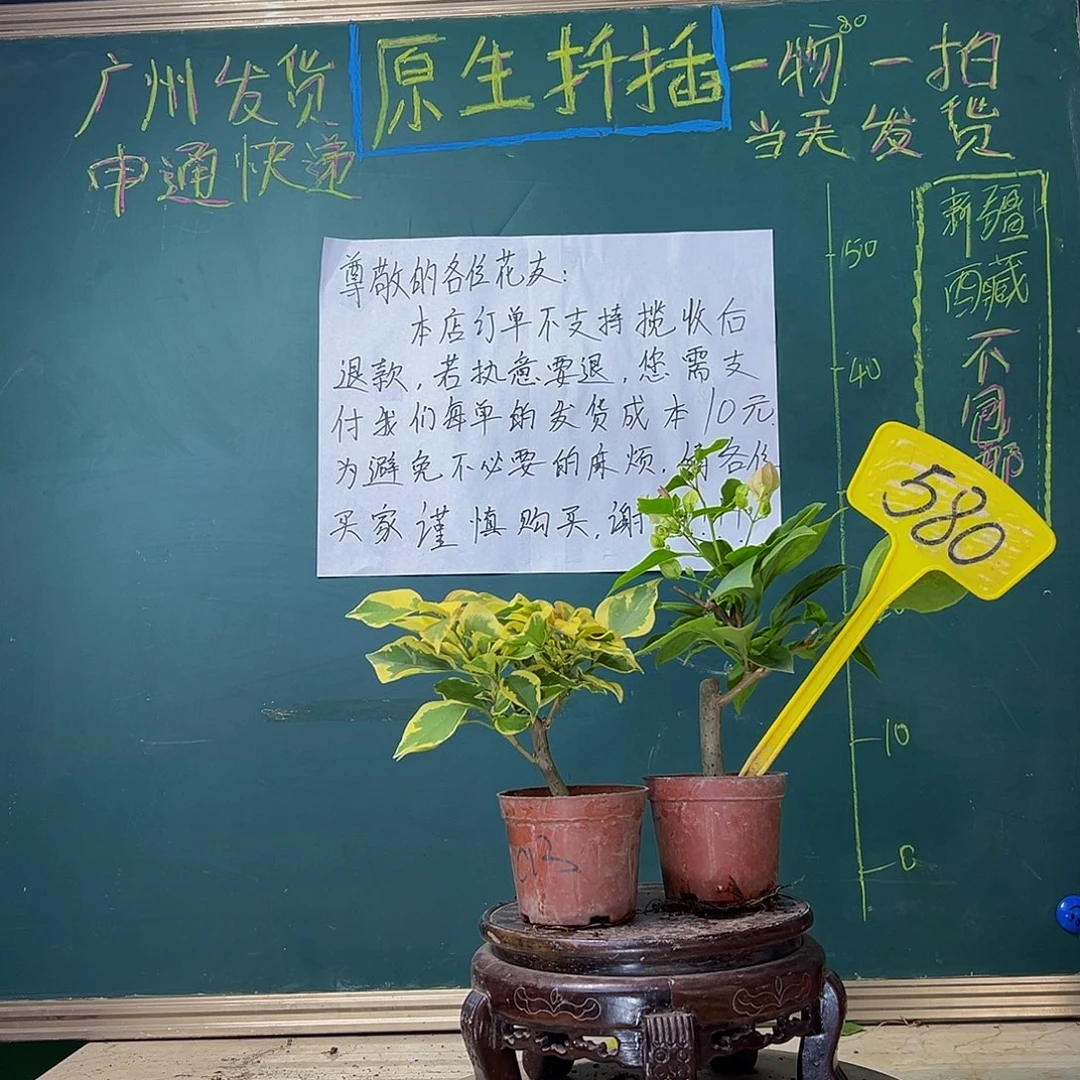 广州发货
申通快递
原生扦插
一物一拍
80
当天发货
新疆
西藏
不
50
40
10
0
尊敬的各位花友:
本店订单不支持揽收后
退款,若执意要退,您需支
付我们每单的发货成本10元.
为避免不必要的麻烦.请各位
买家谨慎购买.谢
580